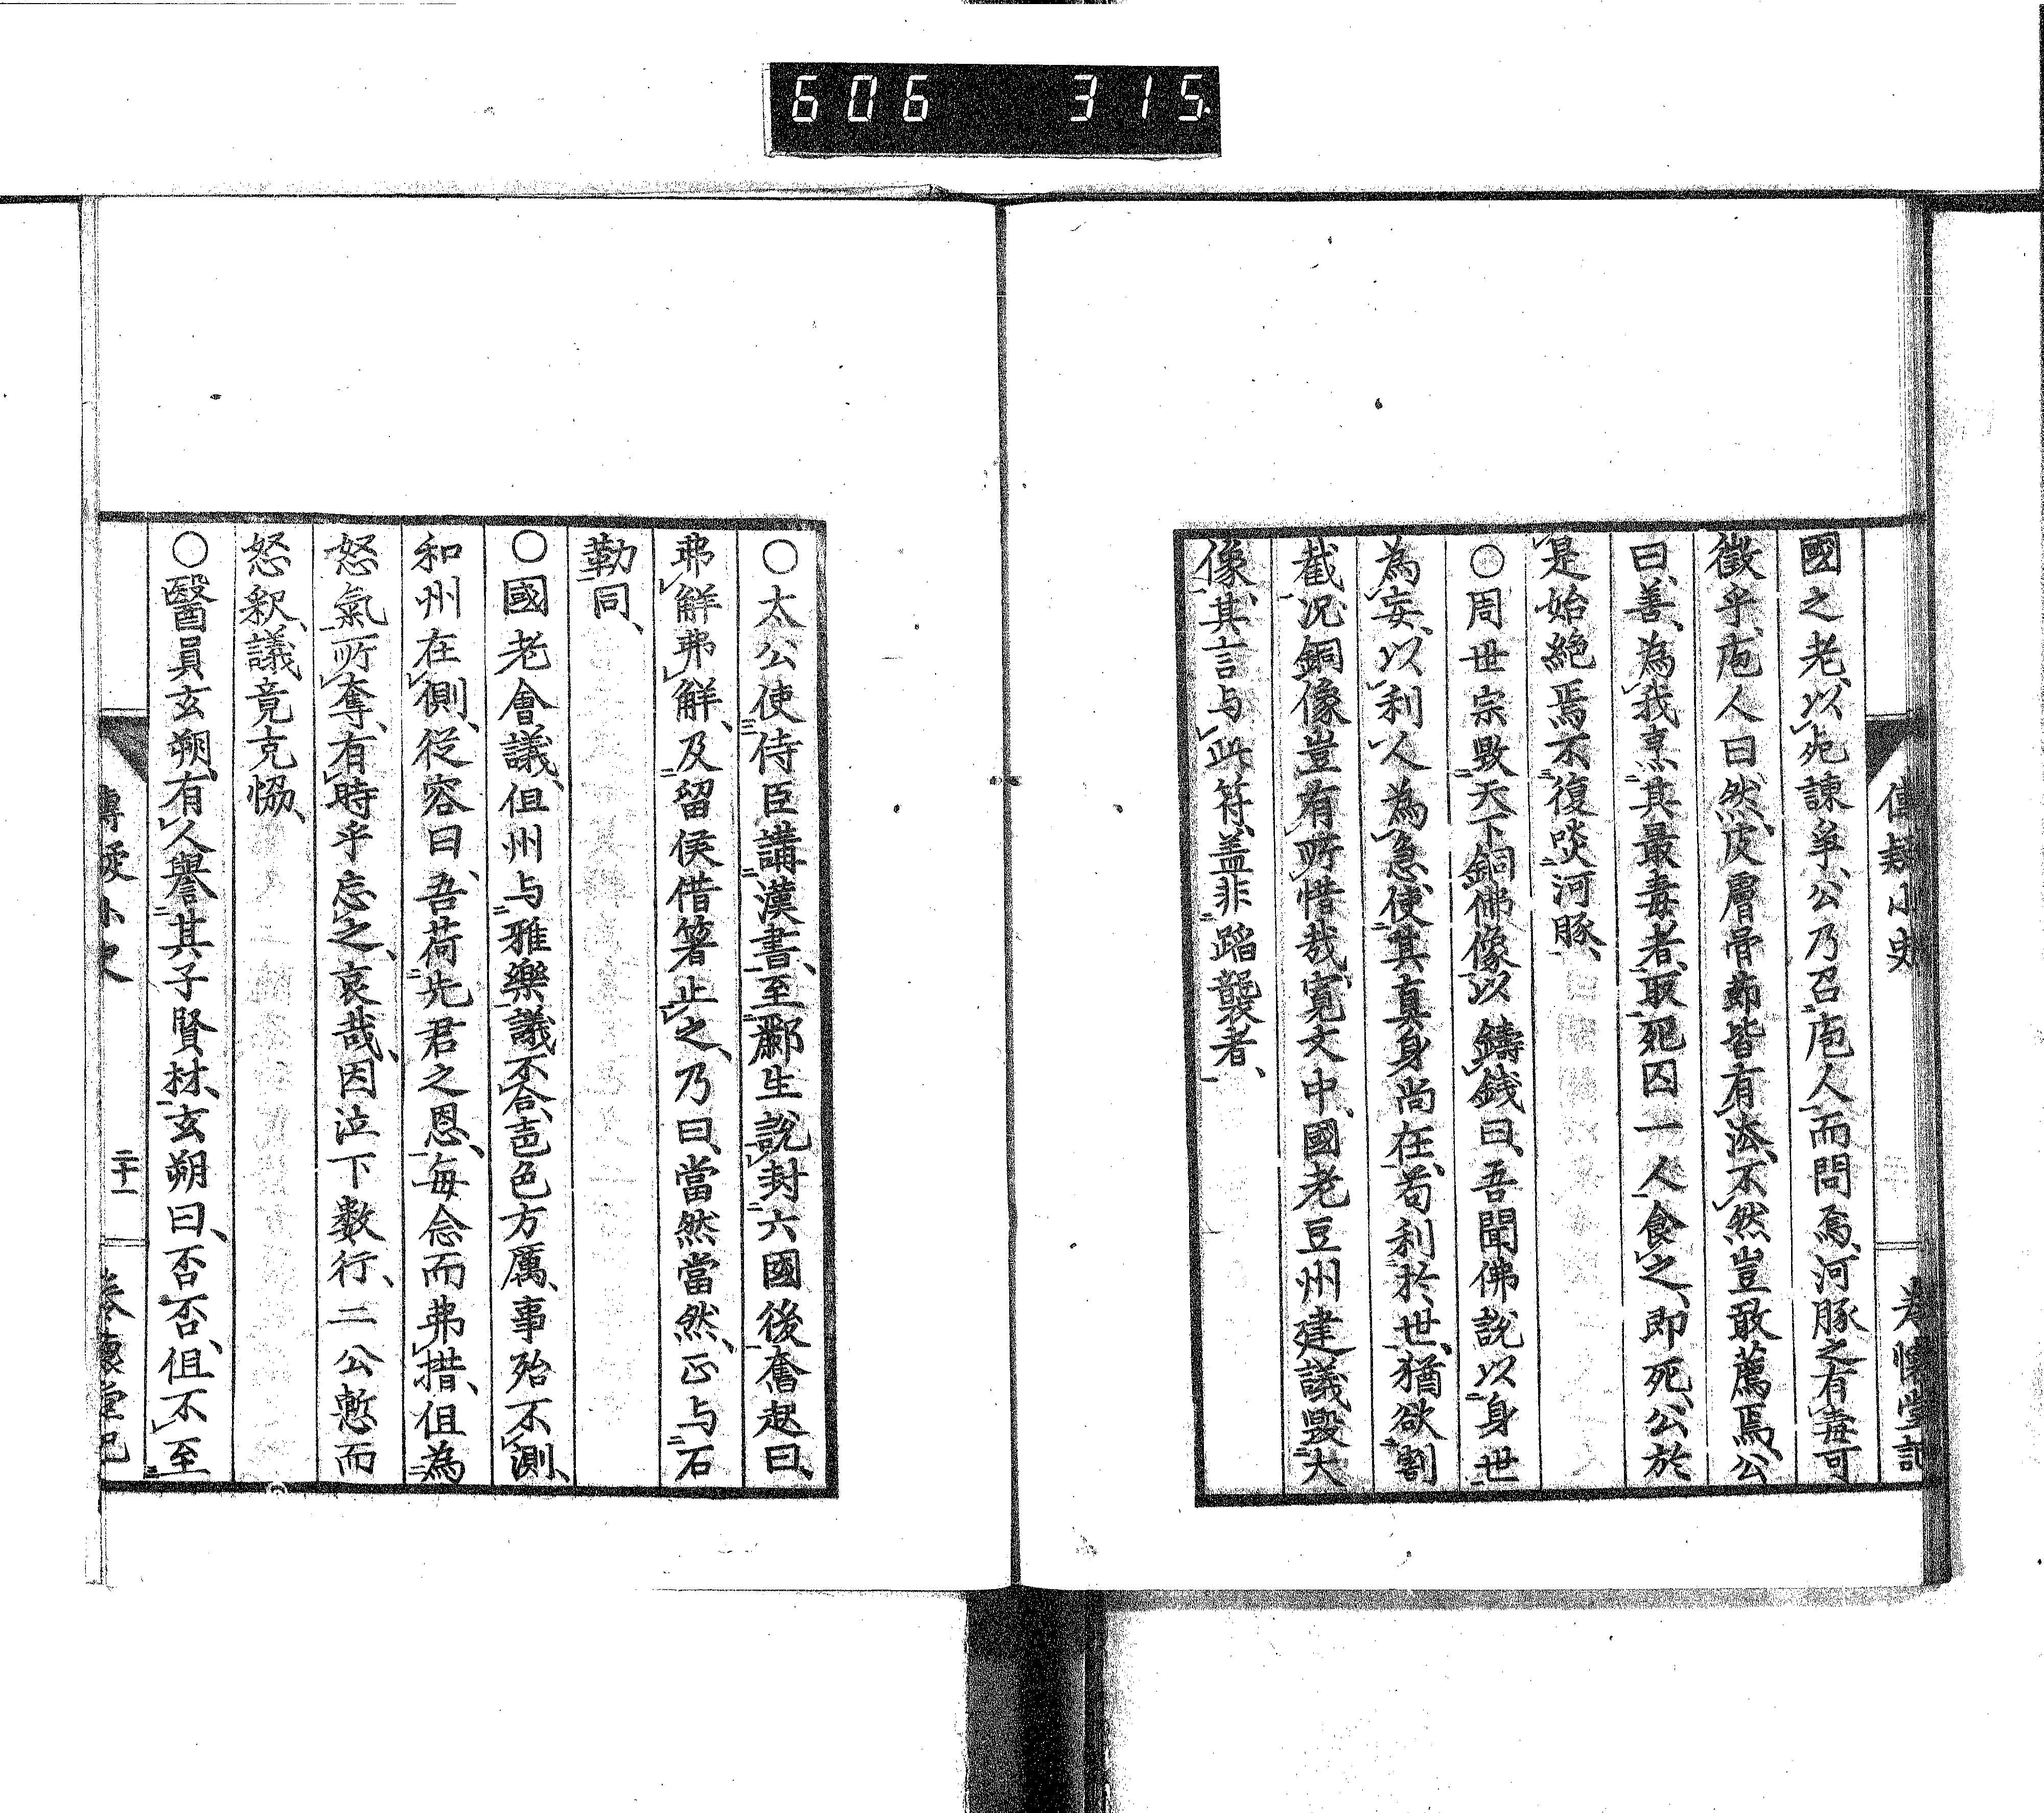 606 315
傳疑小史
國之老、以死諫爭、公乃召庖人而問焉、河豚之有毒可
徵乎、庖人曰、然、皮層骨節皆有法、不然豈敢薦焉、公
曰、善、為我烹其最毒者、取死囚一人食之、即死、公於
是始絕焉不復啖河豚、
○周世宗毀天下銅佛像以鑄錢曰、吾聞佛說以身世
為妄、以利人為急、使其真身尚在、苟利於世、猶欲割
截、況銅像豈有所惜哉、寬文中、國老豆州建議毀大
像、其言与此符、蓋非蹈襲者、
○太公使侍臣講漢書、至酈生說封六國後、奮起曰、
弗解弗解、及留侯借箸止之、乃曰、當然當然、正与石
勒同、
○國老會議、伹州与雅樂議不合、壱色方厲、事殆不測、
和州在側、從容曰、吾荷先君之恩、每念而弗措、伹為
怒氣所奪、有時乎忘之、哀哉、因泣下数行、二公慙而
怒釈、議竟克恊、
○醫員玄朔、有人譽其子賢材、玄朔曰、否否、伹不至
二十一